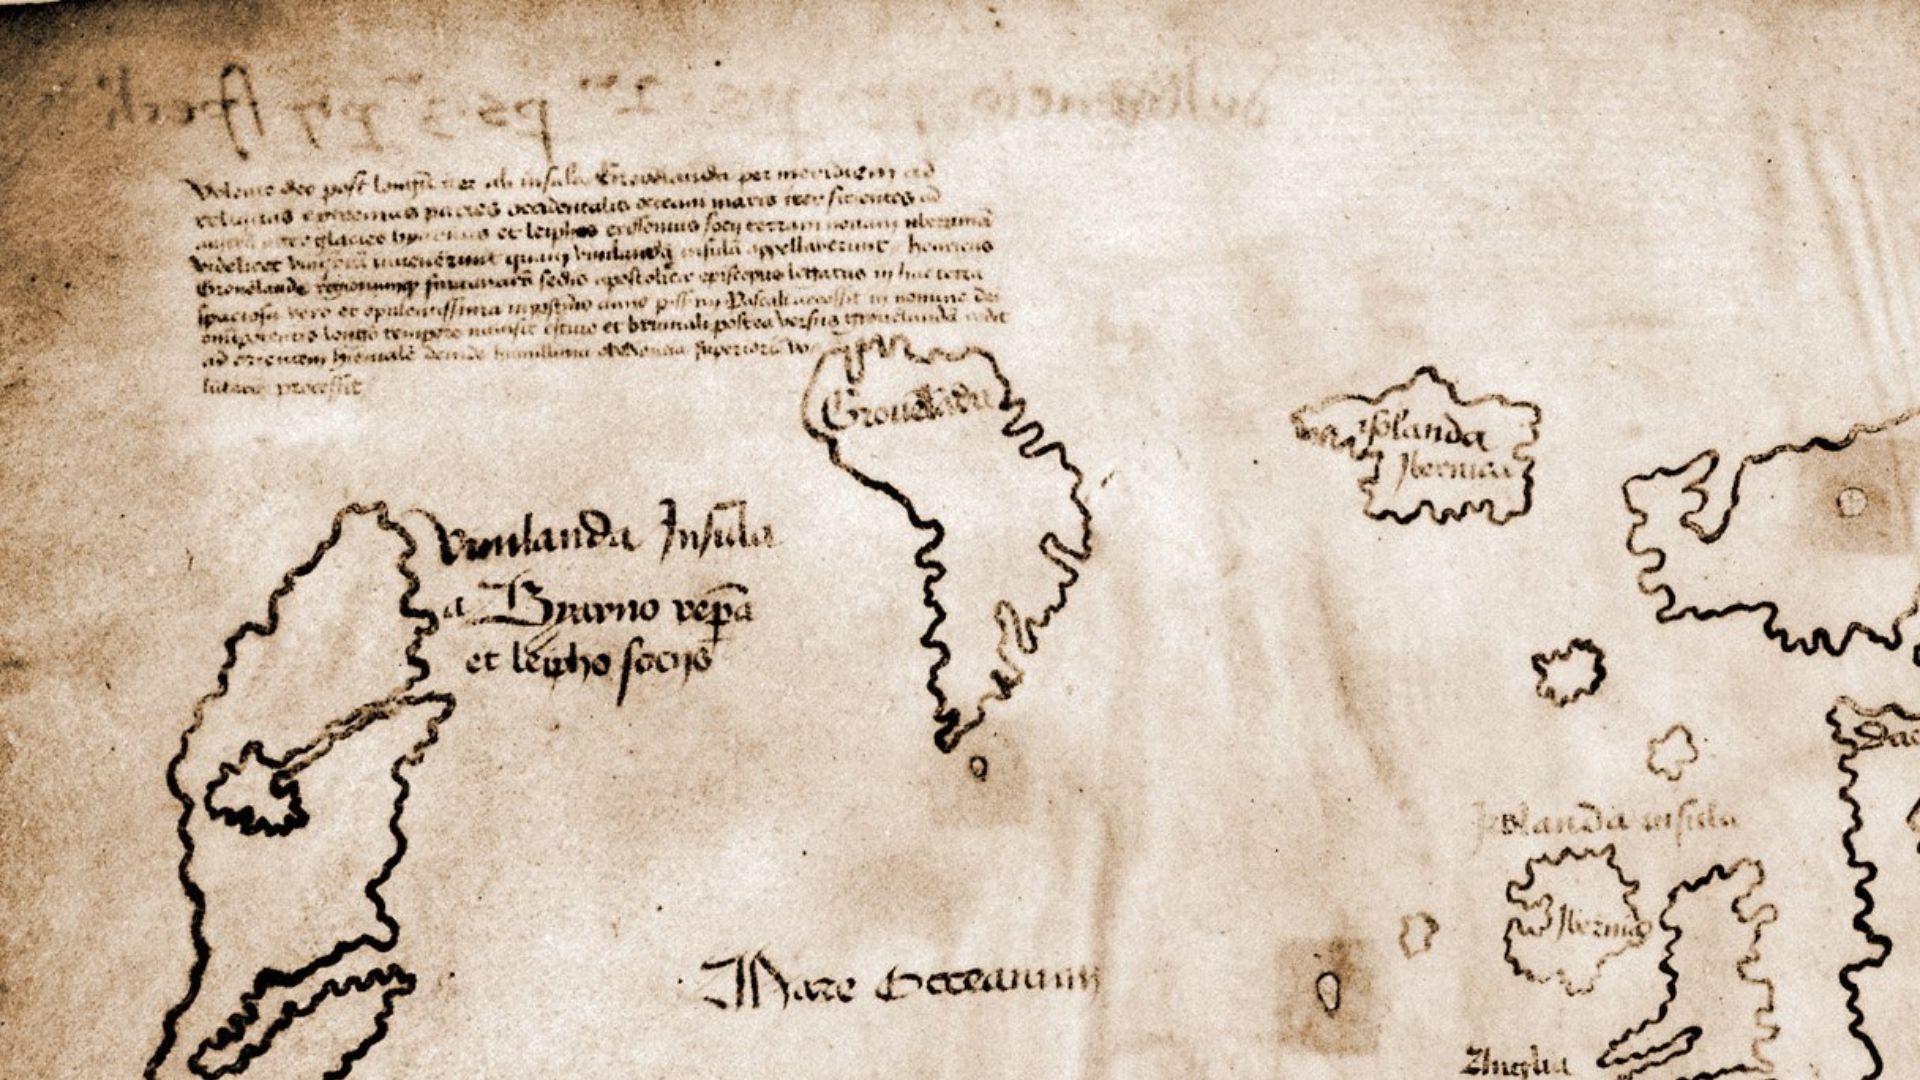 Volente deo post longū iter ab insula Gronelanda per meridiem ad
reliquas extremas partes occidentalis occeani maris iter facientes ad
glacies byarnus et leiphus erissonius socij terram nouam uberrimā
videlicet viniferā inuenerunt quam vinilandā insulā appellauerunt henricus
Gronelande sedis apostolicae episcopus legatus in hac terra
spaciosa vero et opulentissima in postmo anno Pascali accessit in nomine dei
omnipotentis longo tempore mansit estiuo et brumali postea versus gronelandā redit
ad orientem hiemalē deinde humillima obediencia superiori vo
luntati processit
Gronelāda
jsolanda
jbernica
Vinilanda Insula
a Byarno repa
et leipho socijs
Dac
jsolanda insula
jbernia
Mare Occeanum
Anglia